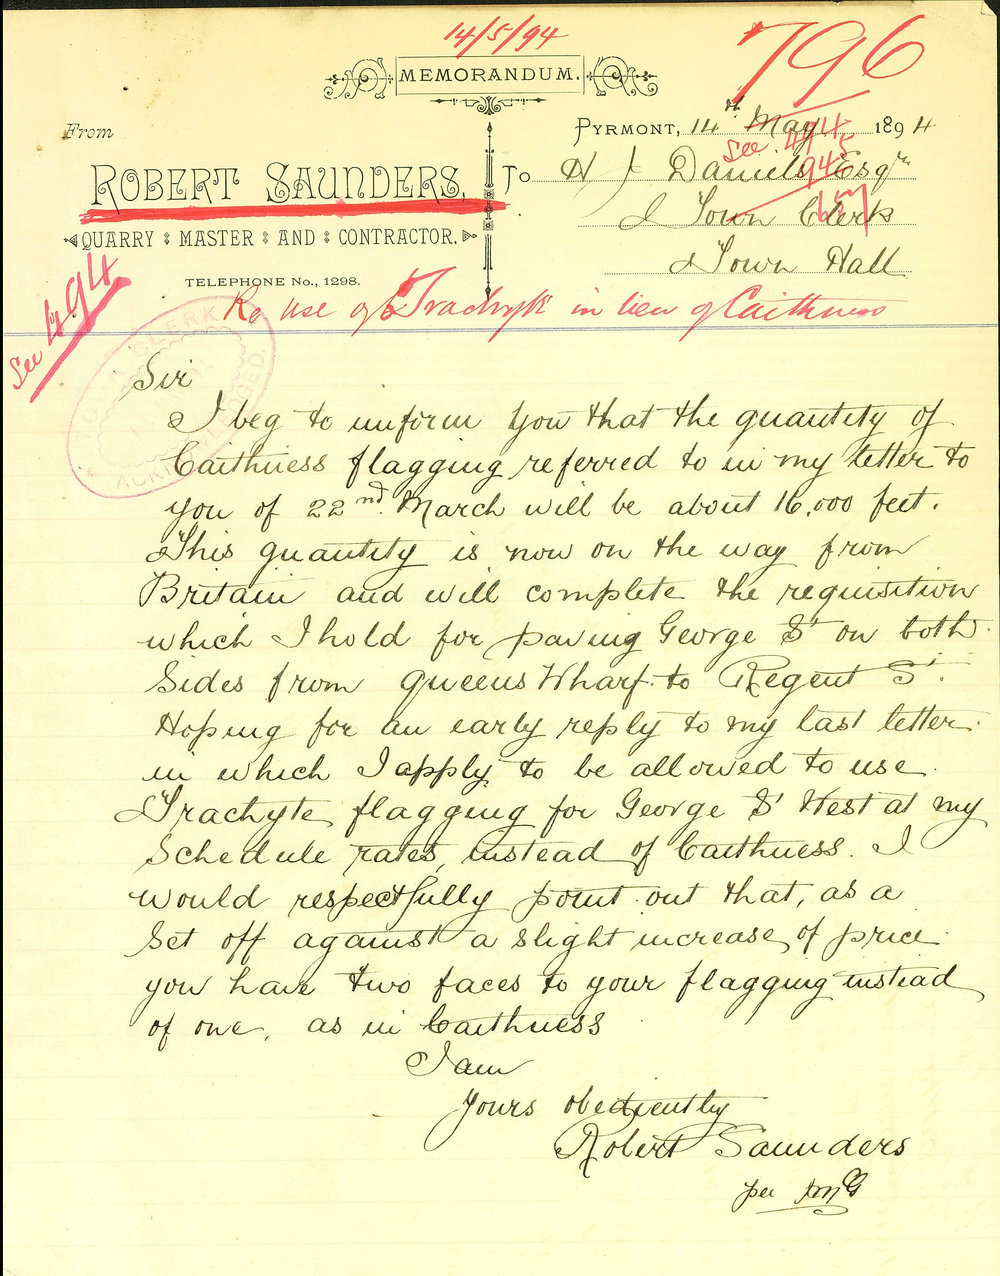 14/5/94
796
MEMORANDUM.
From
PYRMONT, 14th May 1894
See 494
945
ROBERT SAUNDERS,
To H J Daniels Esqr
Town Clerk
QUARRY MASTER AND CONTRACTOR.
Town Hall
TELEPHONE No., 1298.
See 494
Re use of Trachyte in lieu of Caithness
TOWN CLERK
ACKNOWLEDGED
Sir
I beg to inform you that the quantity of
Caithness flagging referred to in my letter to
you of 22nd March will be about 16,000 feet.
This quantity is now on the way from
Britain and will complete the requisition
which I hold for paving George St on both
sides from Queens Wharf to Regent St.
Hoping for an early reply to my last letter
in which I apply to be allowed to use
Trachyte flagging for George St West at my
Schedule rates, instead of Caithness. I
would respectfully point out that, as a
set off against a slight increase of price
you have two faces to your flagging instead
of one, as in Caithness
I am
Yours obediently
Robert Saunders
per